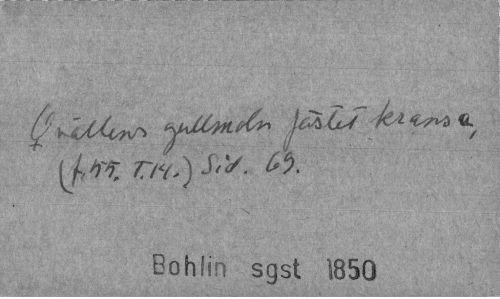 Qvällens gullmoln fästet kransa,
(f. 55. T.14.) Sid. 69.
Bohlin sgst 1850